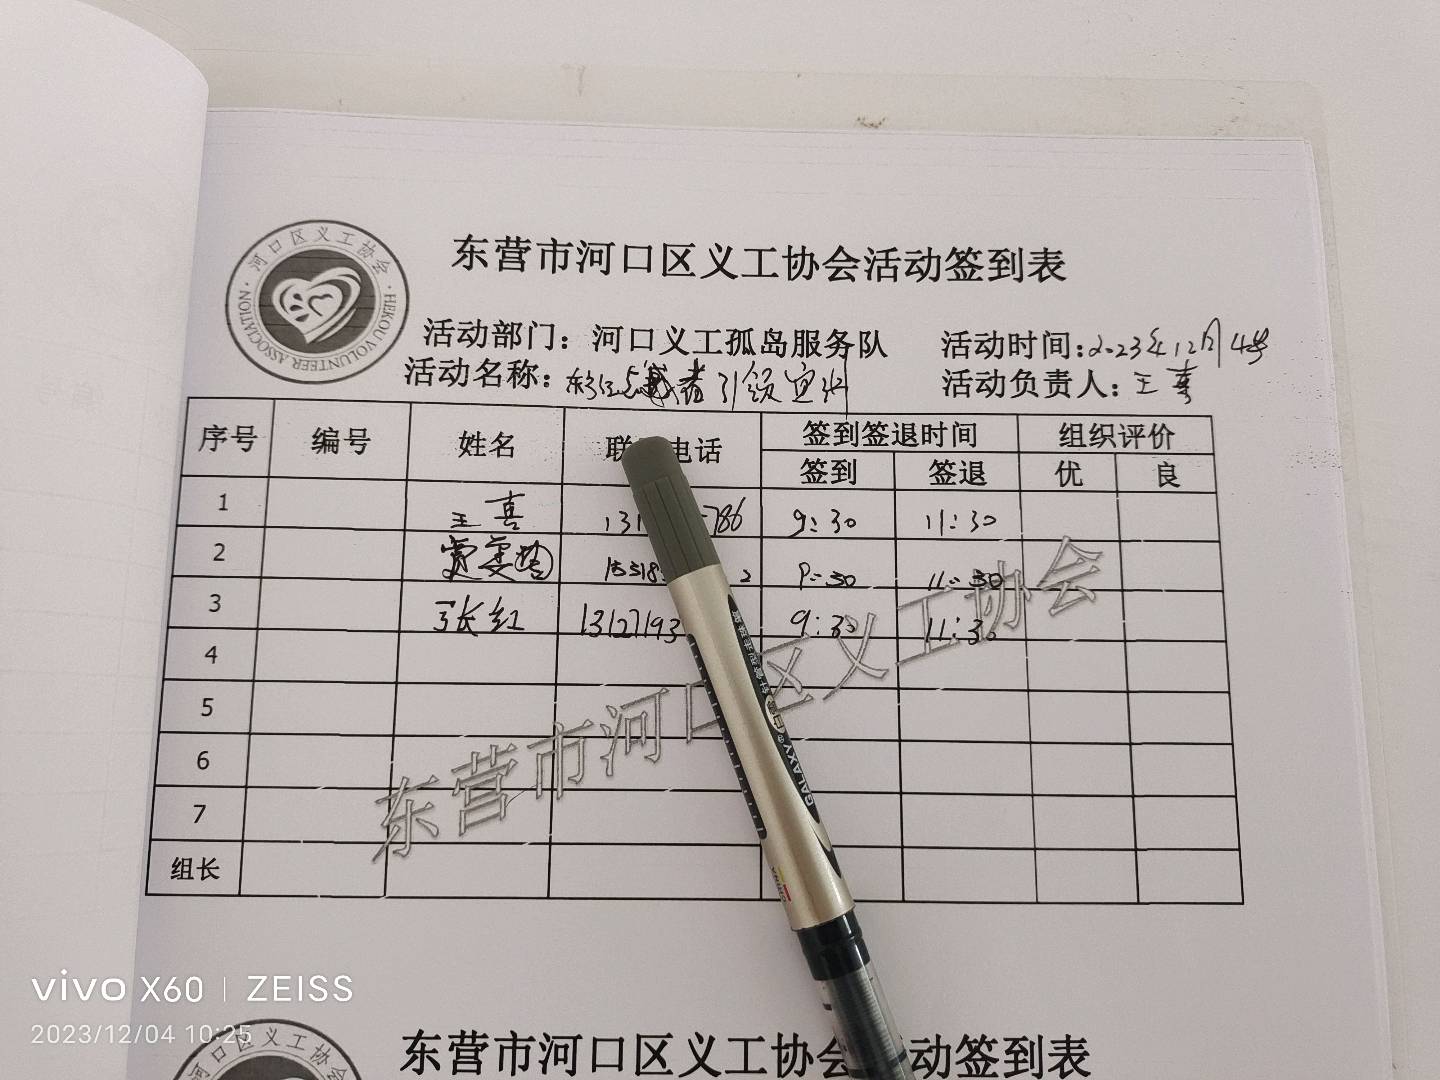 东营市河口区义工协会活动签到表
河口区义工协会
HEKOU VOLUNTEER ASSOCIATION
活动部门：河口义工孤岛服务队 活动时间：2023年12月4号
活动名称： 引领 活动负责人：王喜
序号 编号 姓名 联 电话 签到签退时间 组织评价
签到 签退 优 良
1 王喜 131 786 9:30 11:30
2 15318 2 9:30 11:30
3 张红 13127193 9:30 11:30
4
5
6
7
组长
东营市河口区义工协会
GALAXY
CHINA
vivo X60 | ZEISS
2023/12/04 10:25
河口区义工协会
东营市河口区义工协会活动签到表